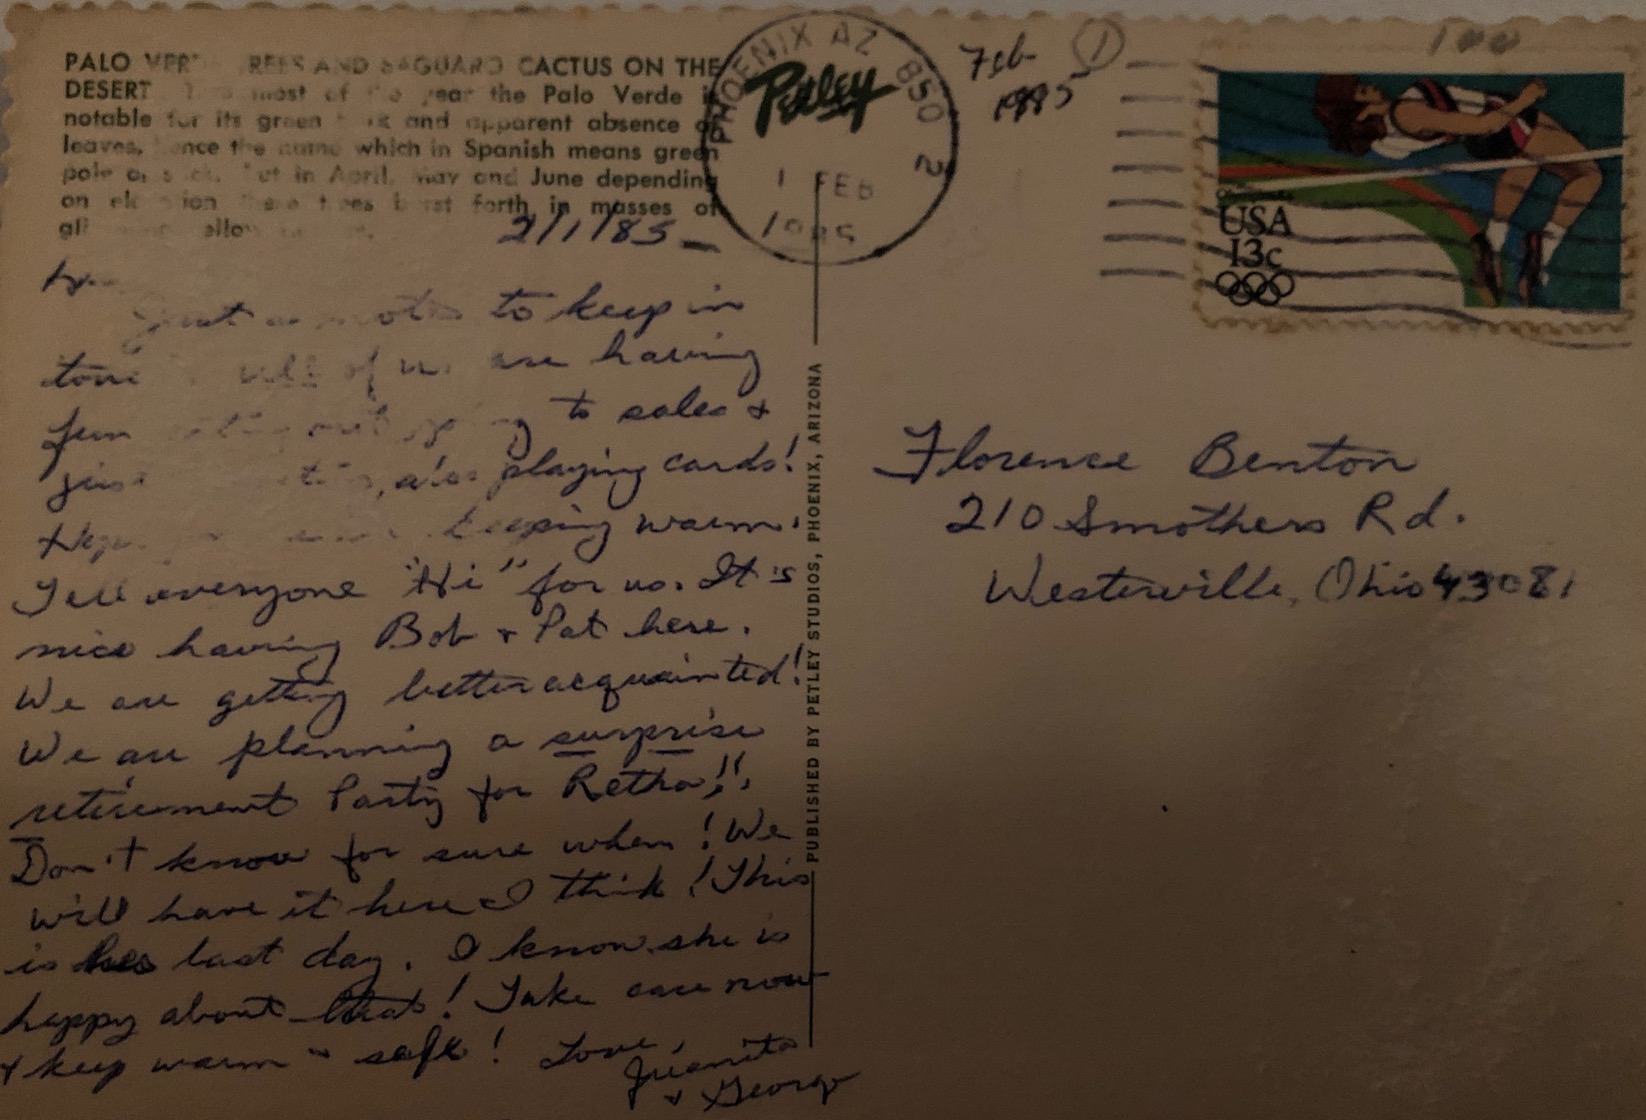 PALO TREES AND SAGUARO CACTUS ON THE
DESERT most of the year the Palo Verde is
notable for its green and apparent absence of
leaves, hence the name which in Spanish means green
pole or But in April, May and June depending
on these trees burst forth in masses of
2/1/85
Just a note to keep in
all of us are having
fun going to sales &
just also playing cards!
keeping warm.
Tell everyone "Hi" for us. It is
nice having Bob & Pat here.
We are getting better acquainted!
We are planning a surprise
retirement Party for Retha!!
Don't know for sure when! We
will have it here I think! This
is her last day. I know she is
happy about that! Take care now
& keep warm & safe! Love,
Juanita
& George
PHOENIX AZ 850 2
1 FEB
1985
Petley
Feb- 1
1985
100
USA
13c
PUBLISHED BY PETLEY STUDIOS, PHOENIX, ARIZONA
Florence Benton
210 Smothers Rd.
Westerville, Ohio 43081